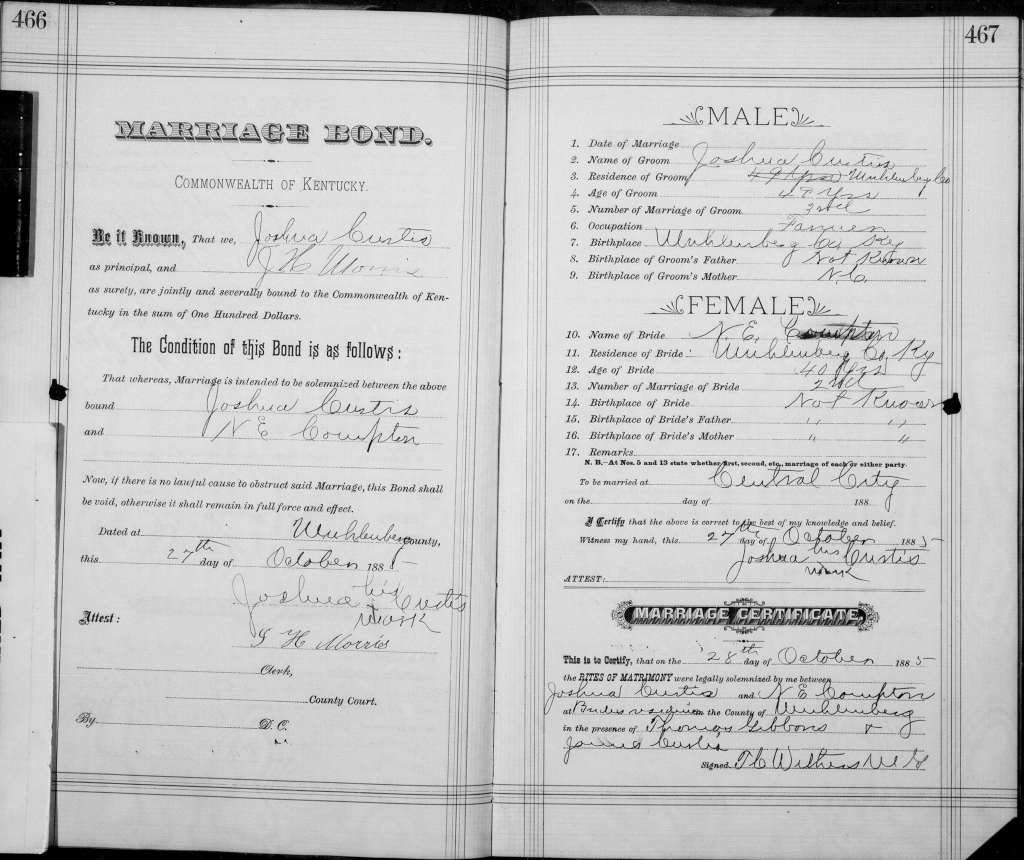 466
MARRIAGE BOND.
COMMONWEALTH OF KENTUCKY.
Be it Known, That we, Joshua Custis
as principal, and J H Morris
as surety, are jointly and severally bound to the Commonwealth of Ken-
tucky in the sum of One Hundred Dollars.
The Condition of this Bond is as follows:
That whereas, Marriage is intended to be solemnized between the above
bound Joshua Custis
and N E Compton
Now, if there is no lawful cause to obstruct said Marriage, this Bond shall
be void, otherwise it shall remain in full force and effect.
Dated at Muhlenberg County,
this 27th day of October 1885
Joshua his Custis
mark
Attest:
J H Morris
Clerk,
County Court.
By D. C.
467
MALE
1. Date of Marriage
2. Name of Groom Joshua Custis
3. Residence of Groom Muhlenberg Co
4. Age of Groom 49 Yrs
5. Number of Marriage of Groom 3rd
6. Occupation Farmer
7. Birthplace Muhlenberg Co Ky
8. Birthplace of Groom's Father Not Known
9. Birthplace of Groom's Mother N.C.
FEMALE
10. Name of Bride N. E. Compton
11. Residence of Bride Muhlenberg Co, Ky
12. Age of Bride 40 Yrs
13. Number of Marriage of Bride 2nd
14. Birthplace of Bride Not Known
15. Birthplace of Bride's Father " "
16. Birthplace of Bride's Mother " "
17. Remarks
N. B.—At Nos. 5 and 13 state whether first, second, etc., marriage of each or either party.
To be married at Central City
on the day of 188
I Certify that the above is correct to the best of my knowledge and belief.
Witness my hand, this 27th day of October 1885
Joshua his Custis
mark
ATTEST:
MARRIAGE CERTIFICATE
This is to Certify, that on the 28th day of October 1885
the RITES OF MATRIMONY were legally solemnized by me between
Joshua Custis and N E Compton
at Brides residence in the County of Muhlenberg
in the presence of Thomas Gibbons &
James Custis
Signed. T C Withers